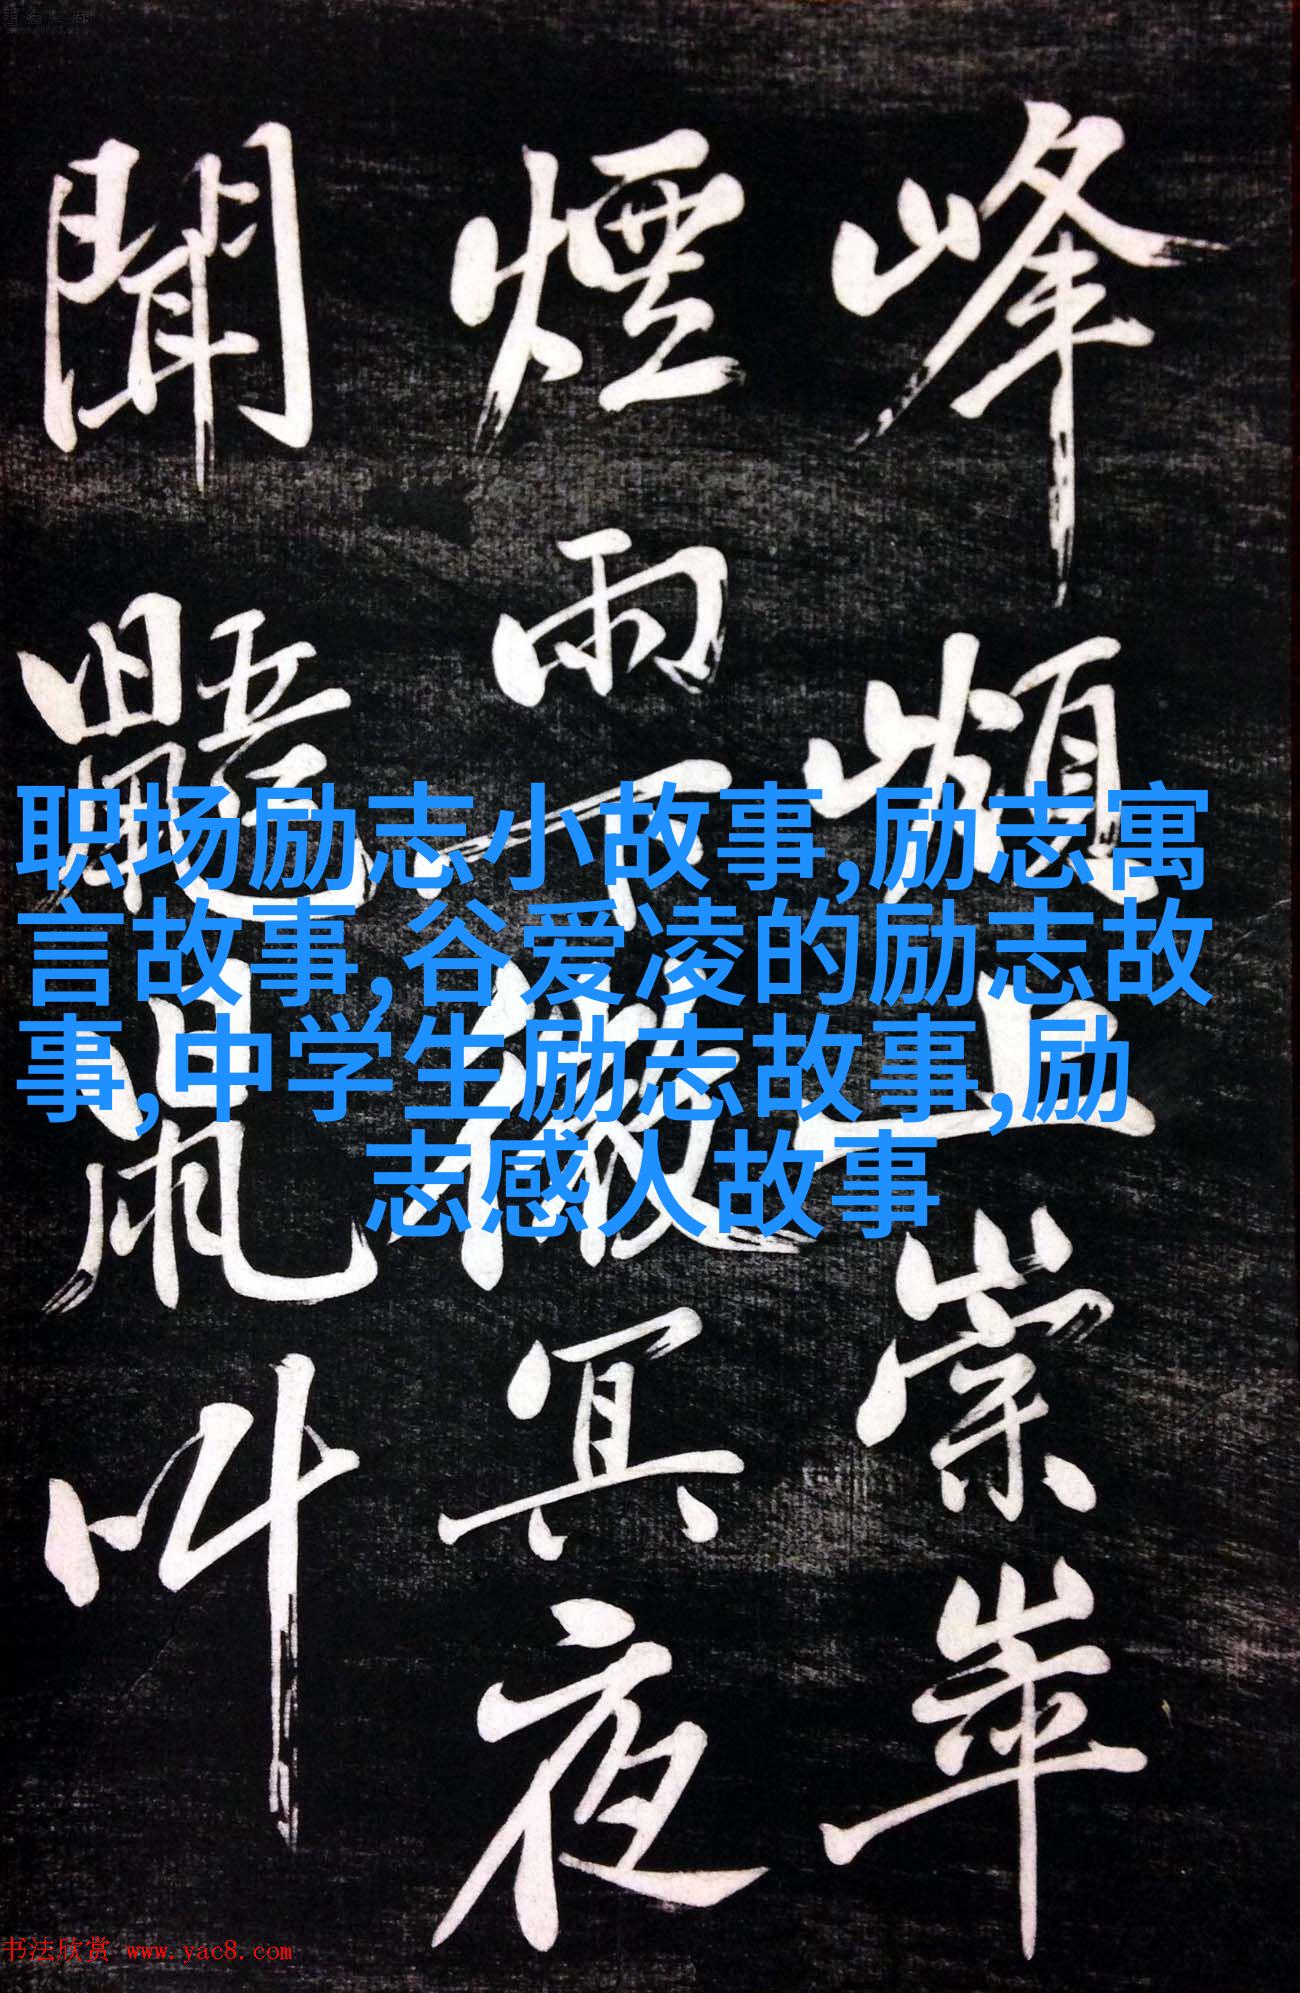 峰嶺上崇崒
煙雨下微冥夜
聞鼯鼠叫
职场励志小故事,励志寓
言故事,谷爱凌的励志故
事,中学生励志故事,励
志感人故事
书法欣赏 www.yac8.com